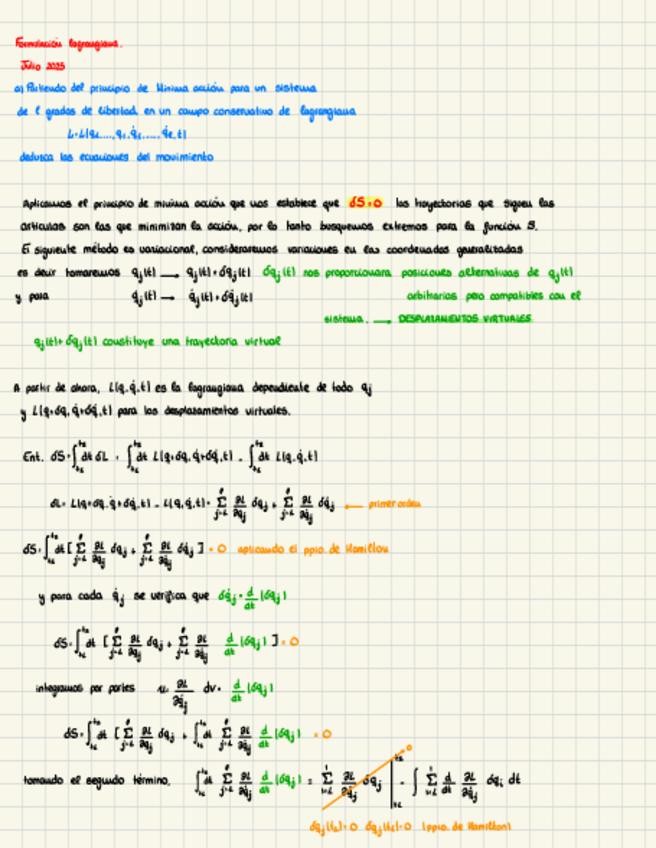 Formulación lagrangiana.
Julio 2025
a) Partiendo del principio de Mínima acción para un sistema
de l grados de libertad, en un campo conservativo de lagrangiana
L=L(q₁,...,qₗ,q̇₁,...,q̇ₗ,t)
deduzca las ecuaciones del movimiento
Aplicamos el principio de mínima acción que nos establece que δS=0 las trayectorias que siguen las
artículas son las que minimizan la acción, por lo tanto busquemos extremos para la función S.
El siguiente método es variacional, consideraremos variaciones en las coordenadas generalizadas
es decir tomaremos qⱼ(t) → qⱼ(t)+δqⱼ(t) δqⱼ(t) nos proporcionara posiciones alternativas de qⱼ(t)
y para q̇ⱼ(t) → q̇ⱼ(t)+δq̇ⱼ(t) arbitrarias pero compatibles con el
sistema. → DESPLAZAMIENTOS VIRTUALES
qⱼ(t)+δqⱼ(t) constituye una trayectoria virtual
A partir de ahora, L(q,q̇,t) es la lagrangiana dependiente de todo qⱼ
y L(q+δq, q̇+δq̇,t) para los desplazamientos virtuales.
Ent. δS=∫ₜ₁^t₂ dt δL = ∫ₜ₁^t₂ dt L(q+δq,q̇+δq̇,t) - ∫ₜ₁^t₂ dt L(q,q̇,t)
δL= L(q+δq,q̇+δq̇,t) - L(q,q̇,t)= Σ ∂L/∂qⱼ δqⱼ + Σ ∂L/∂q̇ⱼ δq̇ⱼ ← primer orden
δS=∫ₜ₁^t₂ dt [ Σ ∂L/∂qⱼ δqⱼ + Σ ∂L/∂q̇ⱼ δq̇ⱼ ] = 0 aplicando el ppio. de Hamilton
y para cada q̇ⱼ se verifica que δq̇ⱼ = d/dt (δqⱼ)
δS=∫ₜ₁^t₂ dt [ Σ ∂L/∂qⱼ δqⱼ + Σ ∂L/∂q̇ⱼ d/dt (δqⱼ) ] = 0
integramos por partes u= ∂L/∂q̇ⱼ dv= d/dt (δqⱼ)
δS=∫ₜ₁^t₂ dt [ Σ ∂L/∂qⱼ δqⱼ + ∫ₜ₁^t₂ dt Σ ∂L/∂q̇ⱼ d/dt (δqⱼ) = 0
tomando el segundo término, ∫ₜ₁^t₂ dt Σ ∂L/∂q̇ⱼ d/dt (δqⱼ) = Σ ∂L/∂q̇ⱼ δqⱼ |ₜ₁^t₂ - ∫ Σ d/dt ∂L/∂q̇ⱼ δqᵢ dt
0
δqⱼ(t₂)=0 δqⱼ(t₁)=0 (ppio. de Hamilton)